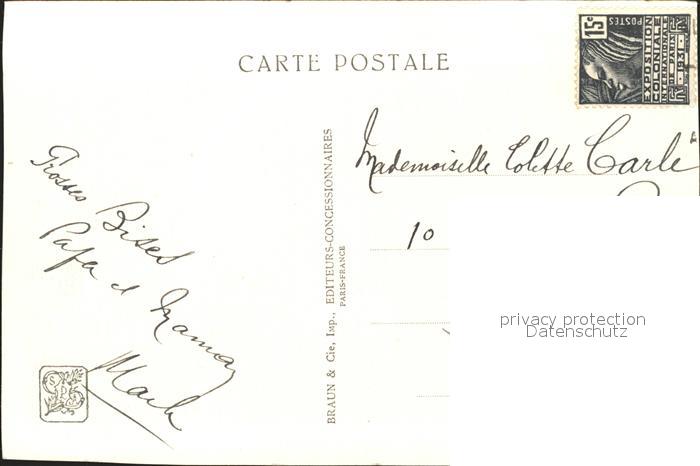 CARTE POSTALE
15c
POSTES
EXPOSITION
COLONIALE
INTERNATIONALE
Mademoiselle Colette Carle
10
Grosses
Bises
Papa et Maman
BRAUN & Cie, Imp., EDITEURS-CONCESSIONNAIRES
PARIS-FRANCE
privacy protection
Datenschutz